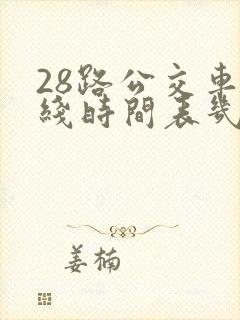 28路公交車
綫時間表幾
姜楠